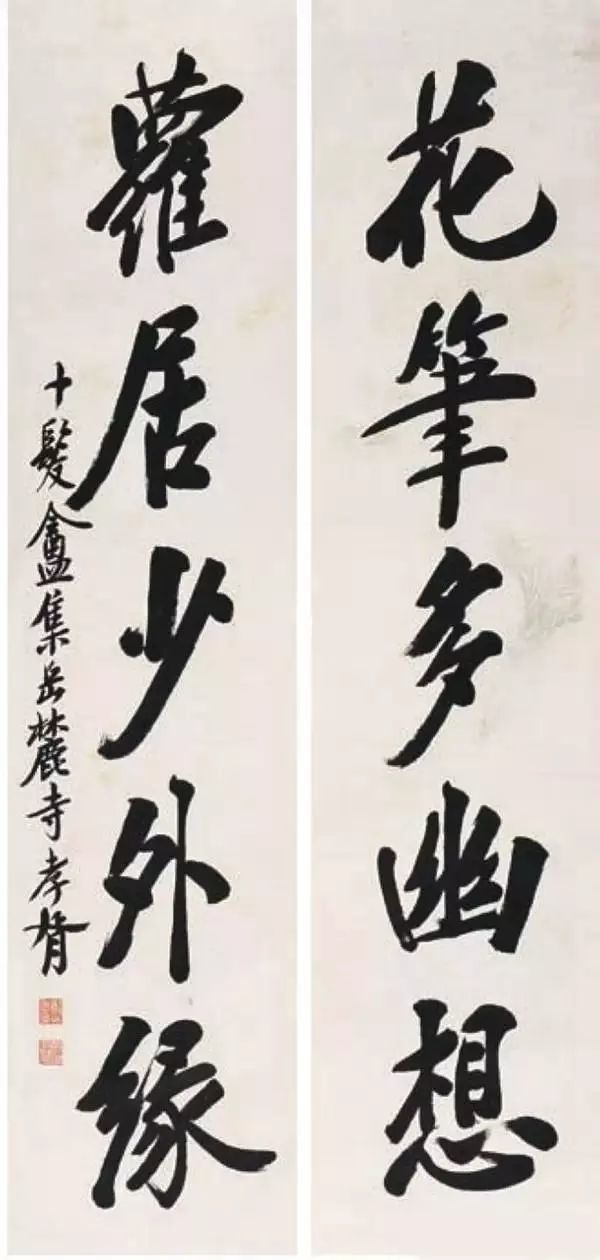 花筆多幽想
蘿居少外緣
十髮盦集岳麓寺孝胥